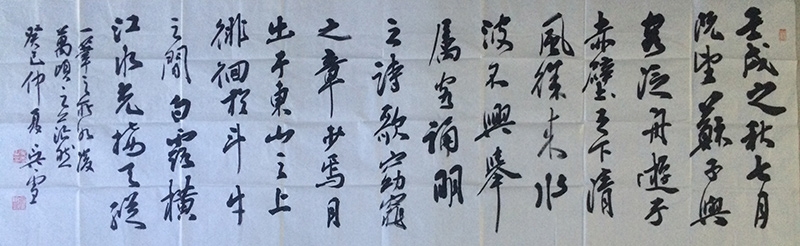 壬戌之秋七月
既望蘇子與
客泛舟遊于
赤壁之下清
風徐來水
波不興舉
属客誦明
之詩歌窈窕
之章少焉月
出于東山之上
徘徊於斗牛
之間白露橫
江水光接天縱
一葦之所如凌
萬頃之茫然
癸巳仲夏吳雪